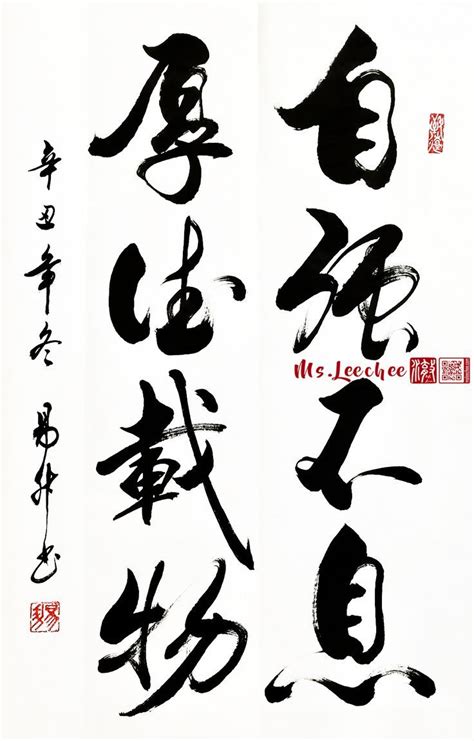 自强不息
厚德載物
辛丑年冬 易升书
Ms.Leechee